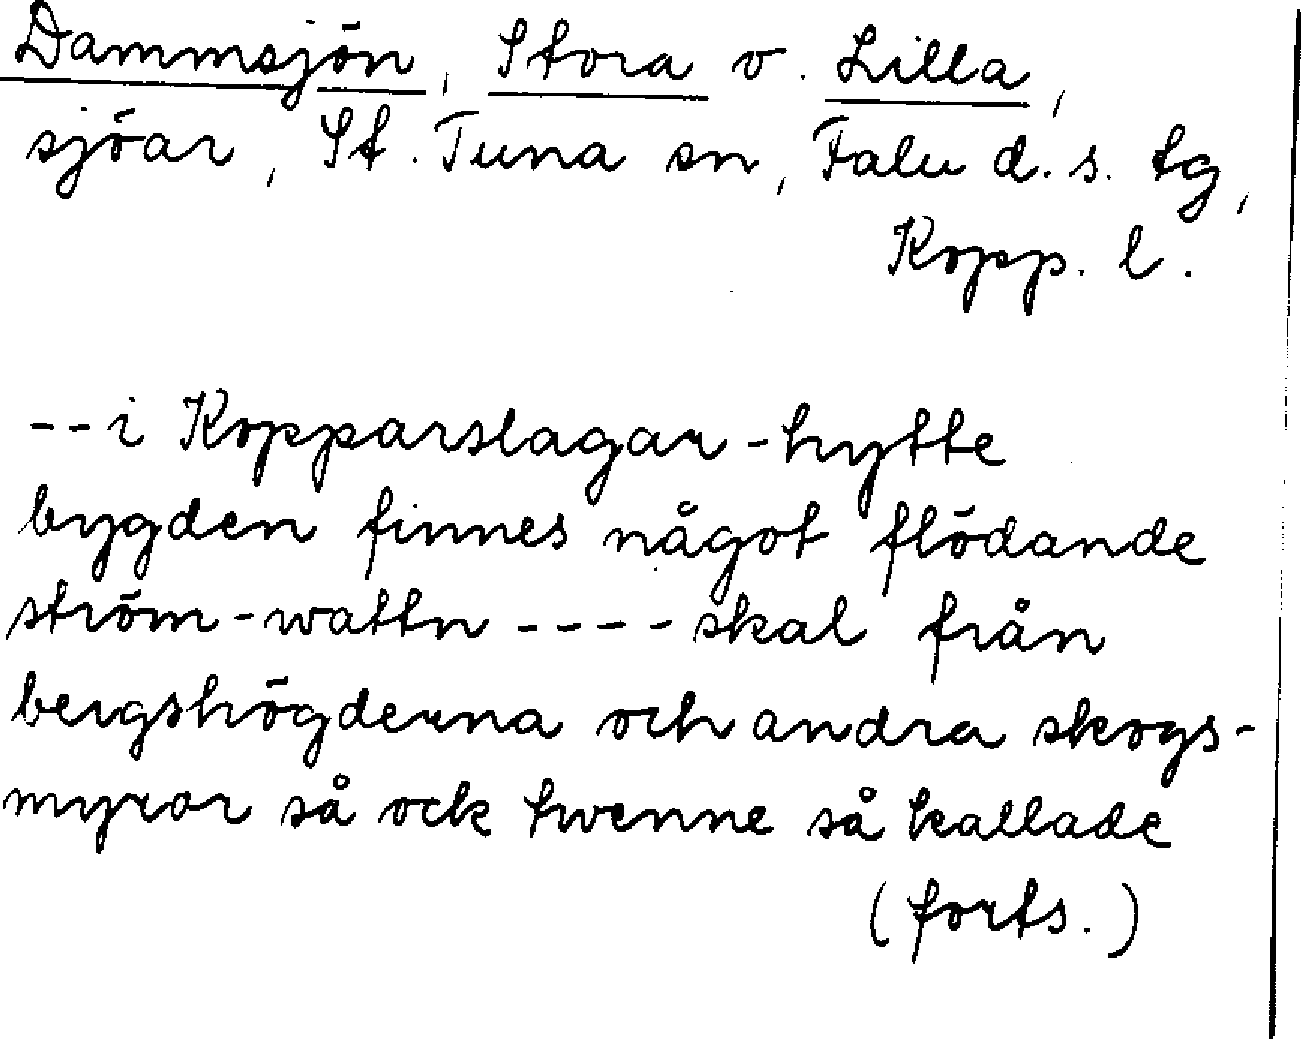 Dammsjön, Stora o. Lilla,
sjöar, St. Tuna sn, Falu d.s. tg,
Kopp. l.
--i Kopparslagar-hytte
bygden finnes något flödande
ström-wattn ---- skal från
bergshögderna och andra skogs-
myror så ock twenne så kallade
(forts.)